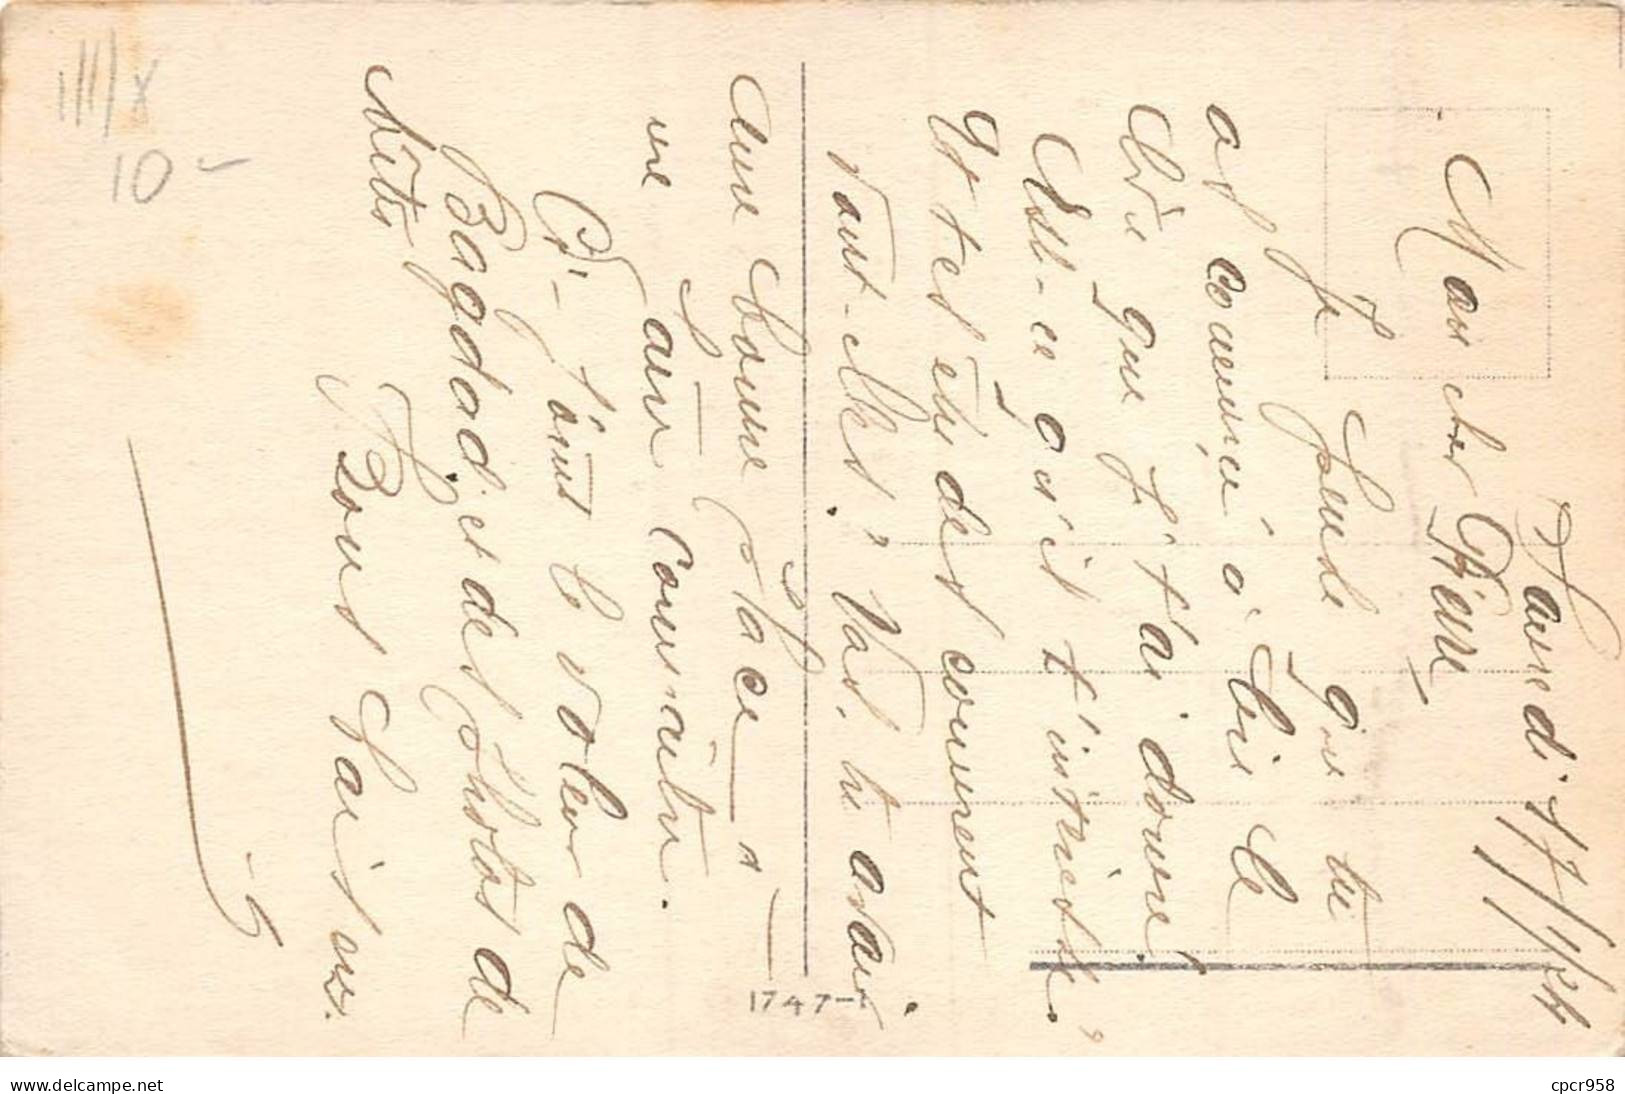 Samedi 17/1/24
Mon cher Pierre
Je pense que tu
as commencé à lire le
livre que j't'ai donné
Est-ce qu'il t'intéresse ?
Et tes études comment
vont-elles ? Vas-tu avoir
une bonne place
au concours
Ci-joint le voleur de
Bagdad et des photos de
Bons baisers
1747
10 -
www.delcampe.net
cpcr958